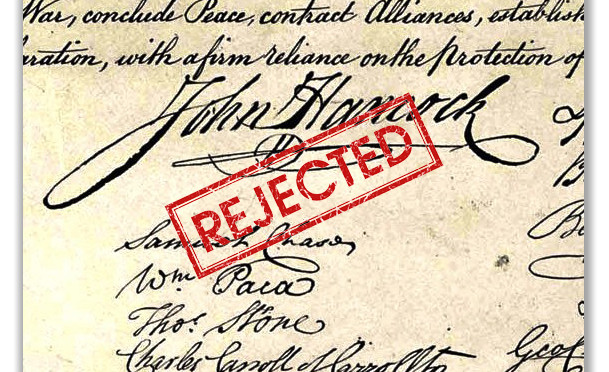 War, conclude Peace, contract Alliances, establish
aration, with a firm reliance on the Protection of
John Hancock
REJECTED
Samuel Chase
Wm Paca
Thos. Stone
Charles Carroll of Carrollton
Geo